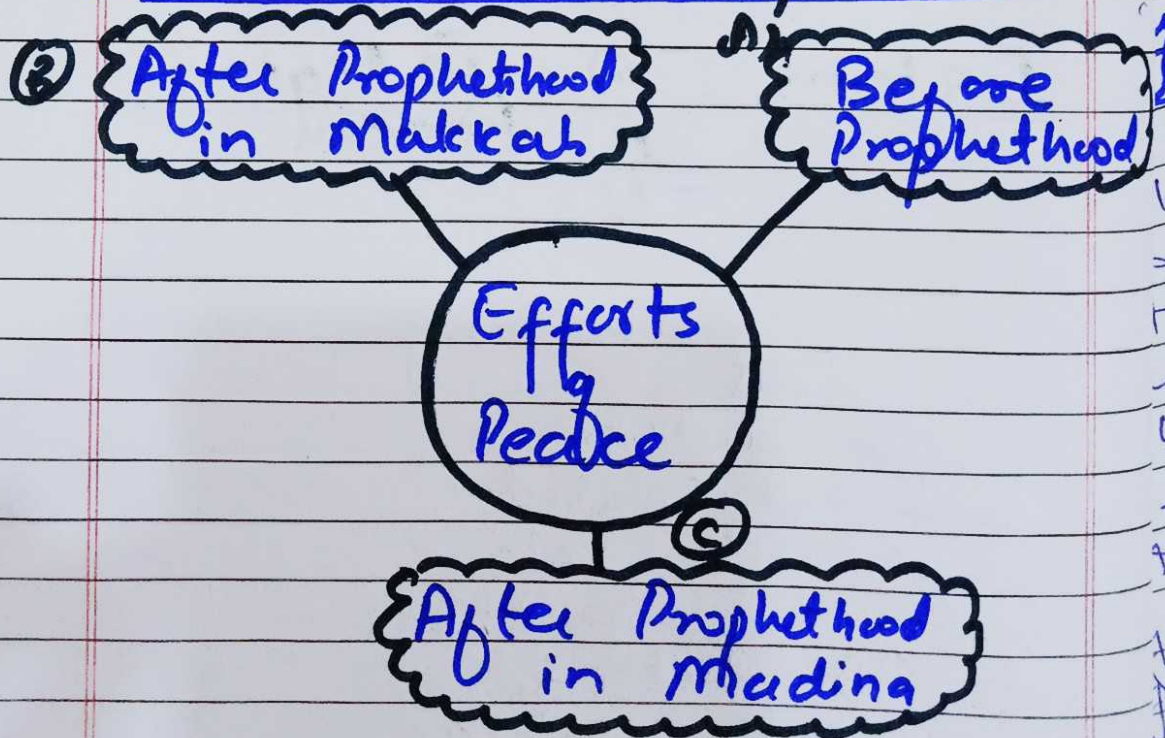 B After Prophethood
in Makkah
A Before
Prophethood
Efforts
of
Peace
C
After Prophethood
in Madina